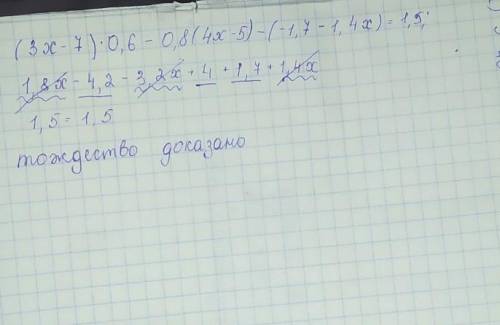 (3x-7)·0,6-0,8(4x-5)-(-1,7-1,4x)=1,5;
1,8x-4,2-3,2x+4+1,7+1,4x
1,5=1,5
тождество доказано